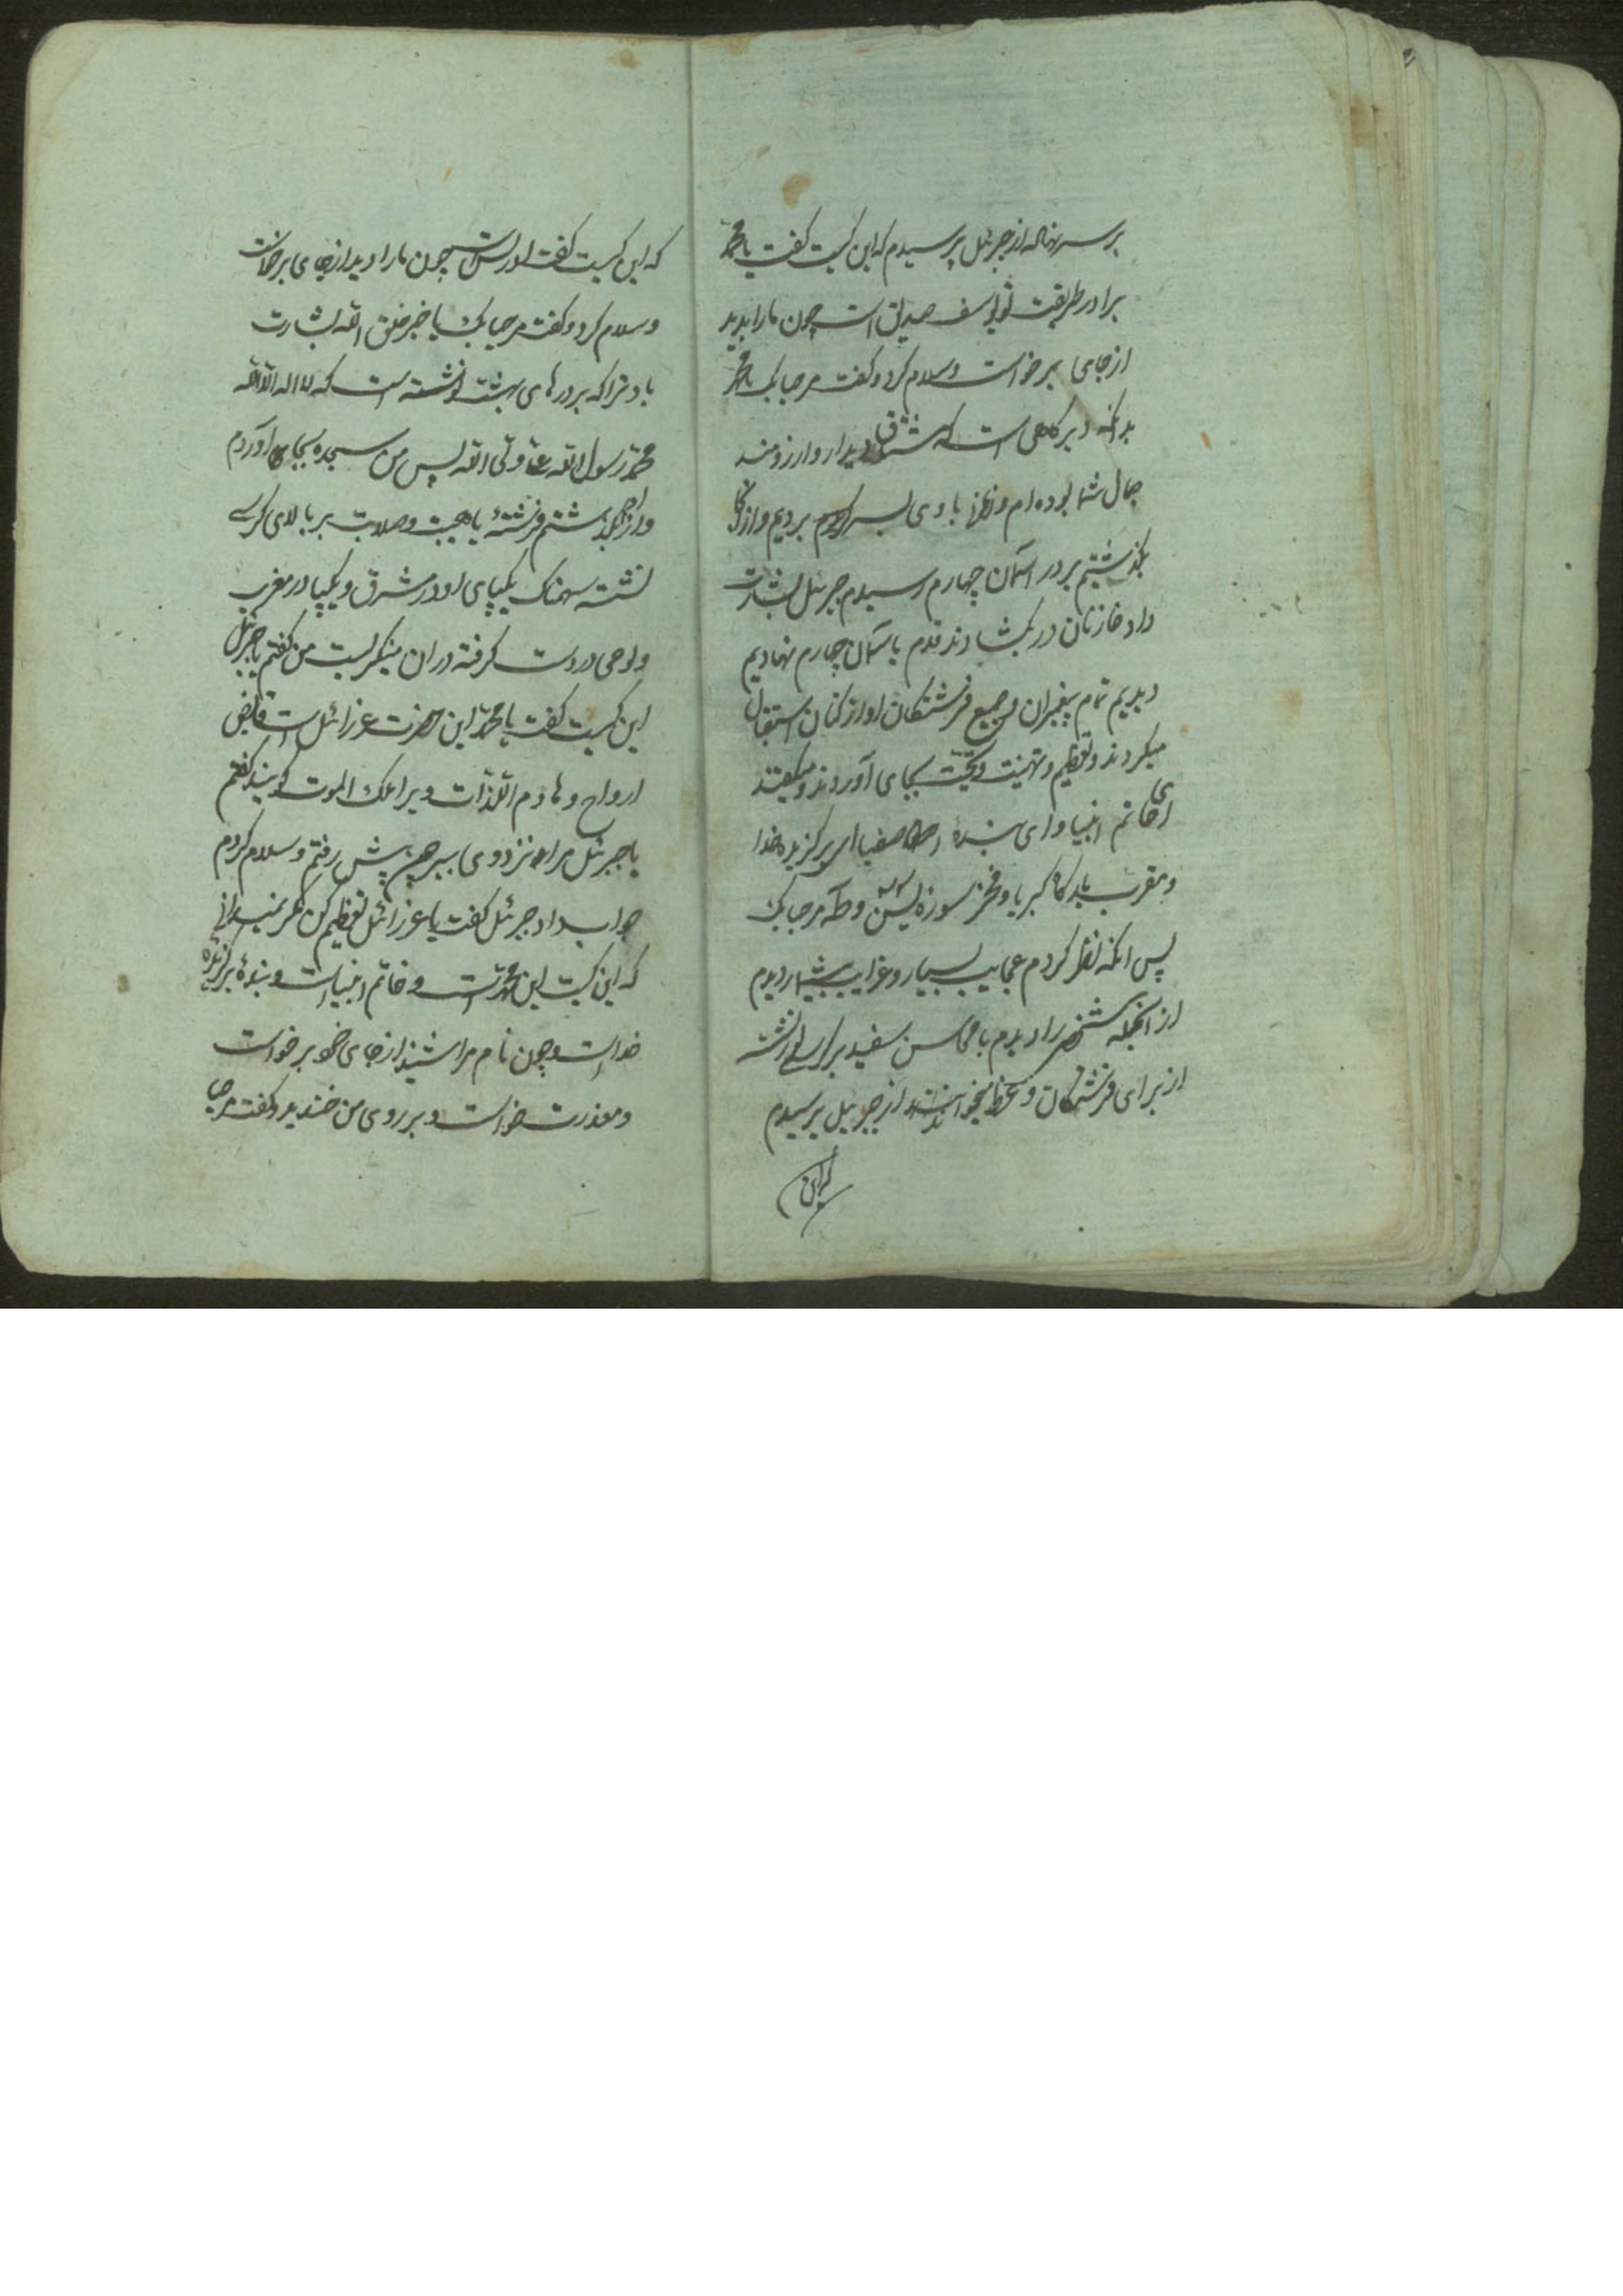 بر سر نهاله از جبرئیل پرسیدم که این کیست گفت یا محمّد
برادر طریقت تو یوسف صدیق است چون ما را بدید
از جای برخواست و سلام کرد و گفت مرحبا بک یا محمّد
بدانکه دیرگاهی است که مشتاق دیدار و ارزومند
جمال شما بوده‌ام و باوی بسر بردیم و از انجا
بگذشتیم بر در آسمان چهارم رسیدم جبرئیل بشارت
داد خازنان در بگشادند قدم با آسمان چهارم نهادیم
دیدیم تمام پیغمبران و جمیع فرشتگان اواز کنان استقبال
میکردند و تعظیم و تهنیت و تحیّت بجای آوردند و میگفتند
ای خاتم انبیا و ای بندهٔ اصفیا ای برگزیده خدا
و مقرب بارگاه کبریا و فخر سورۀ یٰسن و طٓه مرحبا بک
پس انگه نظر کردم عجایب بسیار و غرایب بیشمار دیدم
از انجمله شخصی را دیدم با محاسن سفید بر کرسی نشسته
از برای فرشتگان وعظ میخواند از جبرئیل پرسیدم
که این
که این کیست گفت ادریس است چون ما را دید از جای برخاست
و سلام کرد و گفت مرحبا بک یا خیر خلق الله بشارت
باد ترا که بر درهای بهشت نوشته است که لا اله الا الله
محمّد رسول الله علی ولی الله پس من سجده بجای آوردم
و از انجا گذشتم فرشتهٔ با هیبت و صلابت بر بالای کرسی
نشسته سهمناک یکپای او در مشرق و یکپا در مغرب
و لوحی در دست گرفته در ان مینگریست من گفتم یا جبرئیل
این کیست گفت یا محمّد این حضرت عزرائیل است قابض
ارواح و هادم اللّذّات ویرا ملک الموت گویند گفتم
یا جبرئیل مرا نزد وی ببر چون پیش رفتم و سلام کردم
جواب داد جبرئیل گفت یا عزرائیل تعظیم کن مگر نمیدانی
که این کیست این محمّد است و خاتم انبیاست و بندهٔ برگزیده
خداست و چون نام مرا شنید از جای خود برخواست
و معذرت خواست و بر روی من خندید و گفت مرحبا